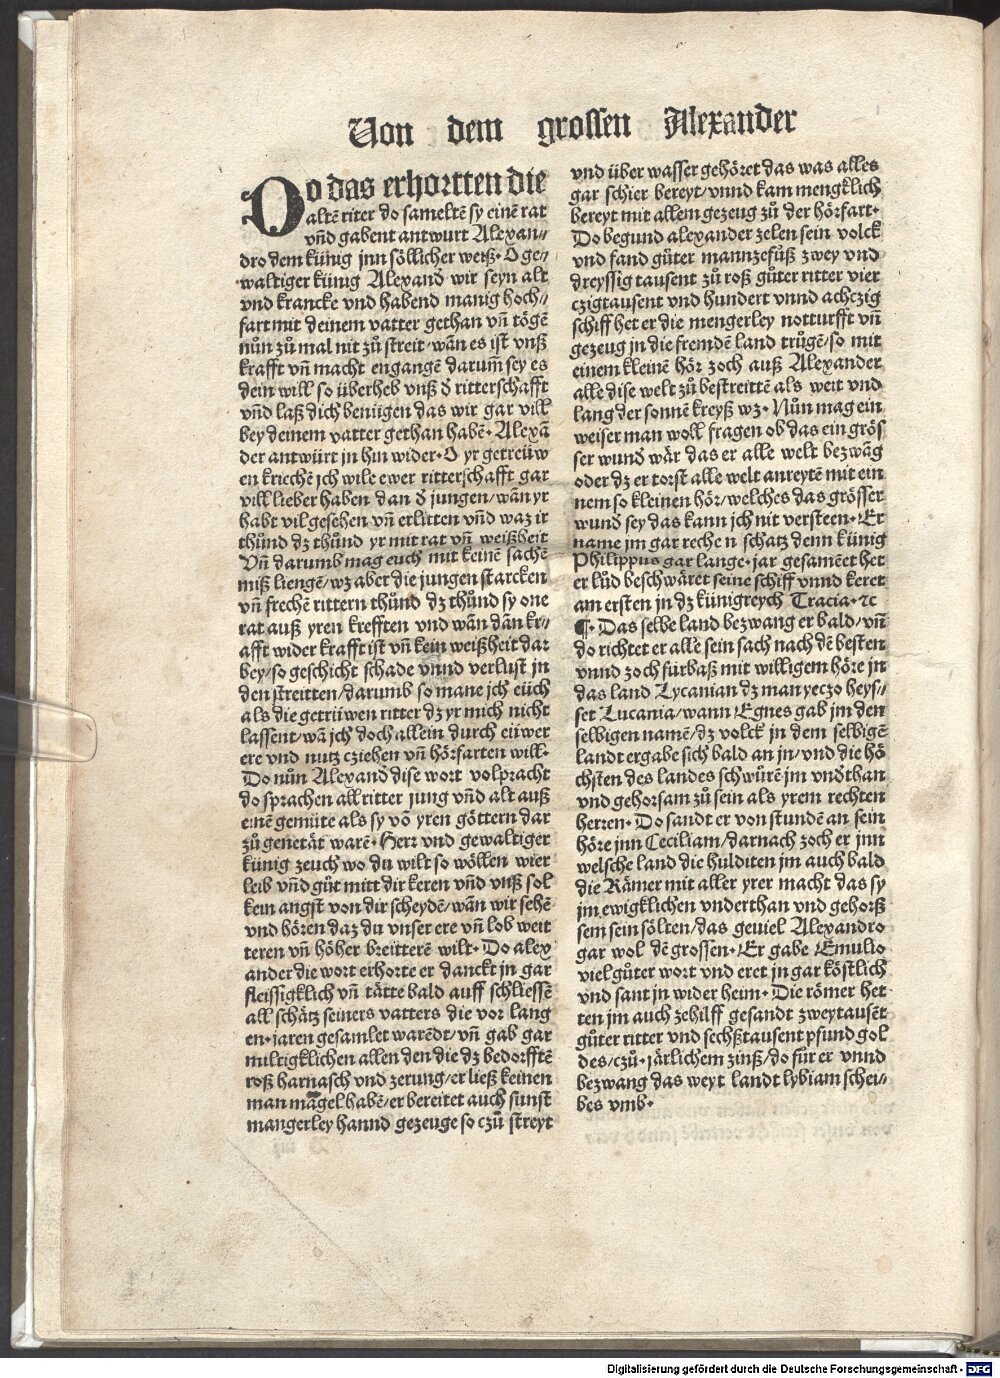 Von dem grossen Alexander
Do das erhortten die
altē riter do sameltē sy einē rat
vn̄d gabent antwurt Alexan⸗
dro dem künig jnn söllicher weiß· O ge⸗
waltiger künig Alexand̄ wir seyn alt
vnd krancke vnd habend manig hoch⸗
fart mit deinem vatter gethan vn̄ tögē
nůn zů mal nit zů streit· wān es ist vnß
krafft vn̄ macht engangē darum̄ sey es
dein will so überheb vnß d̄ ritterschafft
vn̄d laß dich benügen das wir gar vill
bey deinem vatter gethan habē· Alexā
der antwürt jn hin wider· O yr getreüw
en kriechē jch wile ewer ritterschafft gar
vill lieber haben dan d̄ jungen/wān yr
habt vil gesehen vn̄ erlitten vn̄d waz ir
thůnd dz thůnd yr mit rat vn̄ weißheit
Vn̄ darumb mag euch mit keinē sachē
miß liengē/wz aber die jungen starcken
vn̄ frechē rittern thůnd dz thůnd sy one
rat auß yren krefften vnd wān dān kr⸗
afft wider krafft ist vn̄ kein weißheit dar
bey/so geschicht schade vnnd verlust jn
den streitten/darumb so mane jch eüch
als die getrüwen ritter dz yr mich nicht
lassent/wā jch doch allein durch eüwer
ere vnd nutz cziehen vn̄ hörfarten will·
Do nůn Alexand̄ dise wort volpracht
do sprachen all ritter jung vn̄d alt auß
einē gemüte als sy vō yren göttern dar
zů genetät warē· Herr vnd gewaltiger
künig zeuch wo du wilt so wöllen wier
leib vn̄d gůt mitt dir keren vn̄d vnß sol
kein angst von dir scheydē/wān wir sehē
vnd hören daz du vnser ere vn̄ lob weit
teren vn̄ höher breitterē wilt· Do alex
ander die wort erhorte er danckt jn gar
fleissigklich vn̄ tätte bald auff schliessē
all schätz seiners vatters die vor lang
en· jaren gesamlet warēdt/vn̄ gab gar
miltigklichen allen den die dz bedorfftē
roß harnasch vnd zerung/er ließ keinen
man māgel habē/er bereitet auch sunst
mangerley hannd gezeuge so czů streyt
vnd über wasser gehöret das was alles
gar schier bereyt/vnnd kam mengklich
bereyt mit allem gezeug zů der hörfart·
Do begund alexander zelen sein volck
vnd fand gůter mannzefůß zwey vnd
dreyssig tausent zů roß gůter ritter vier
czigtausent vnd hundert vnnd achczig
schiff het er die mengerley notturfft vn̄
gezeug jn die fremdē land trůgē/so mit
einem kleinē hör zoch auß Alexander
alle dise welt zů bestreittē als weit vnd
lang der sonnē kreyß wz· Nůn mag ein
weiser man woll fragen ob das ein grös
ser wund̄ wär das er alle welt bezwāg
oder dz er torst alle welt anreytē mit ein
nem so kleinen hör/welches das grösser
wund̄ sey das kann jch nit versteen· Er
name jm gar reche n schatz denn künig
Philippus gar lange· jar gesamēet het
er lůd beschwäret seine schiff vnnd keret
am ersten jn dz künigreych Tracia· ⁊c
¶· Das selbe land bezwang er bald/vn̄
do richtet er alle sein sach nach dē besten
vnnd zoch fürbaß mit willigem höre jn
das land Lycanian dz man yeczo heys⸗
set Lucania/wann Egnes gab jm den
selbigen namē/dz volck jn dem selbigē
landt ergabe sich bald an jn/vnd die hö
chsten des landes schwůrē jm vnd̄than
vnd gehorsam zů sein als yrem rechten
herren· Do sandt er von stundē an sein
höre jnn Ceciliam/darnach zoch er jnn
welsche land die hulditen jm auch bald
die Rämer mit aller yrer macht das sy
jm ewigklichen vnderthan vnd gehorß
sem sein sölten/das geuiel Alexandro
gar wol dē grossen· Er gabe Emulio
viel gůter wort vnd eret jn gar köstlich
vnd sant jn wider heim· Die römer het
ten jm auch zehilff gesandt zweytausēt
gůter ritter vnd sechßtausent pfund gol
des/czů· järlichem zinß/do fůr er vnnd
bezwang das weyt landt lybiam schei⸗
bes vmb·
Digitalisierung gefördert durch die Deutsche Forschungsgemeinschaft - DFG